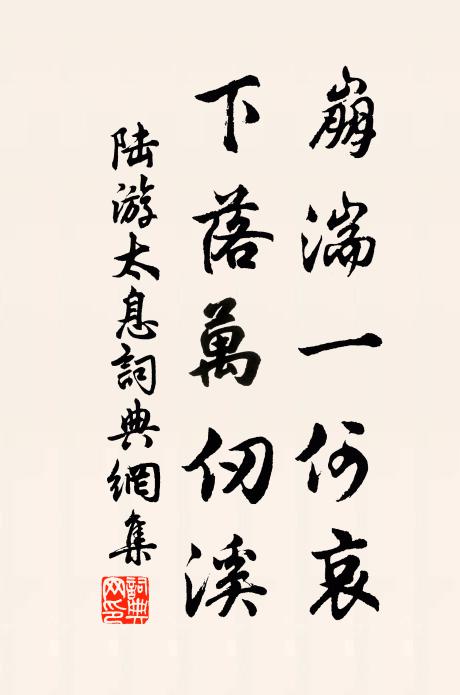 崩湍一何哀
下落萬仞溪
陸游太息詞典網集
詞典網印